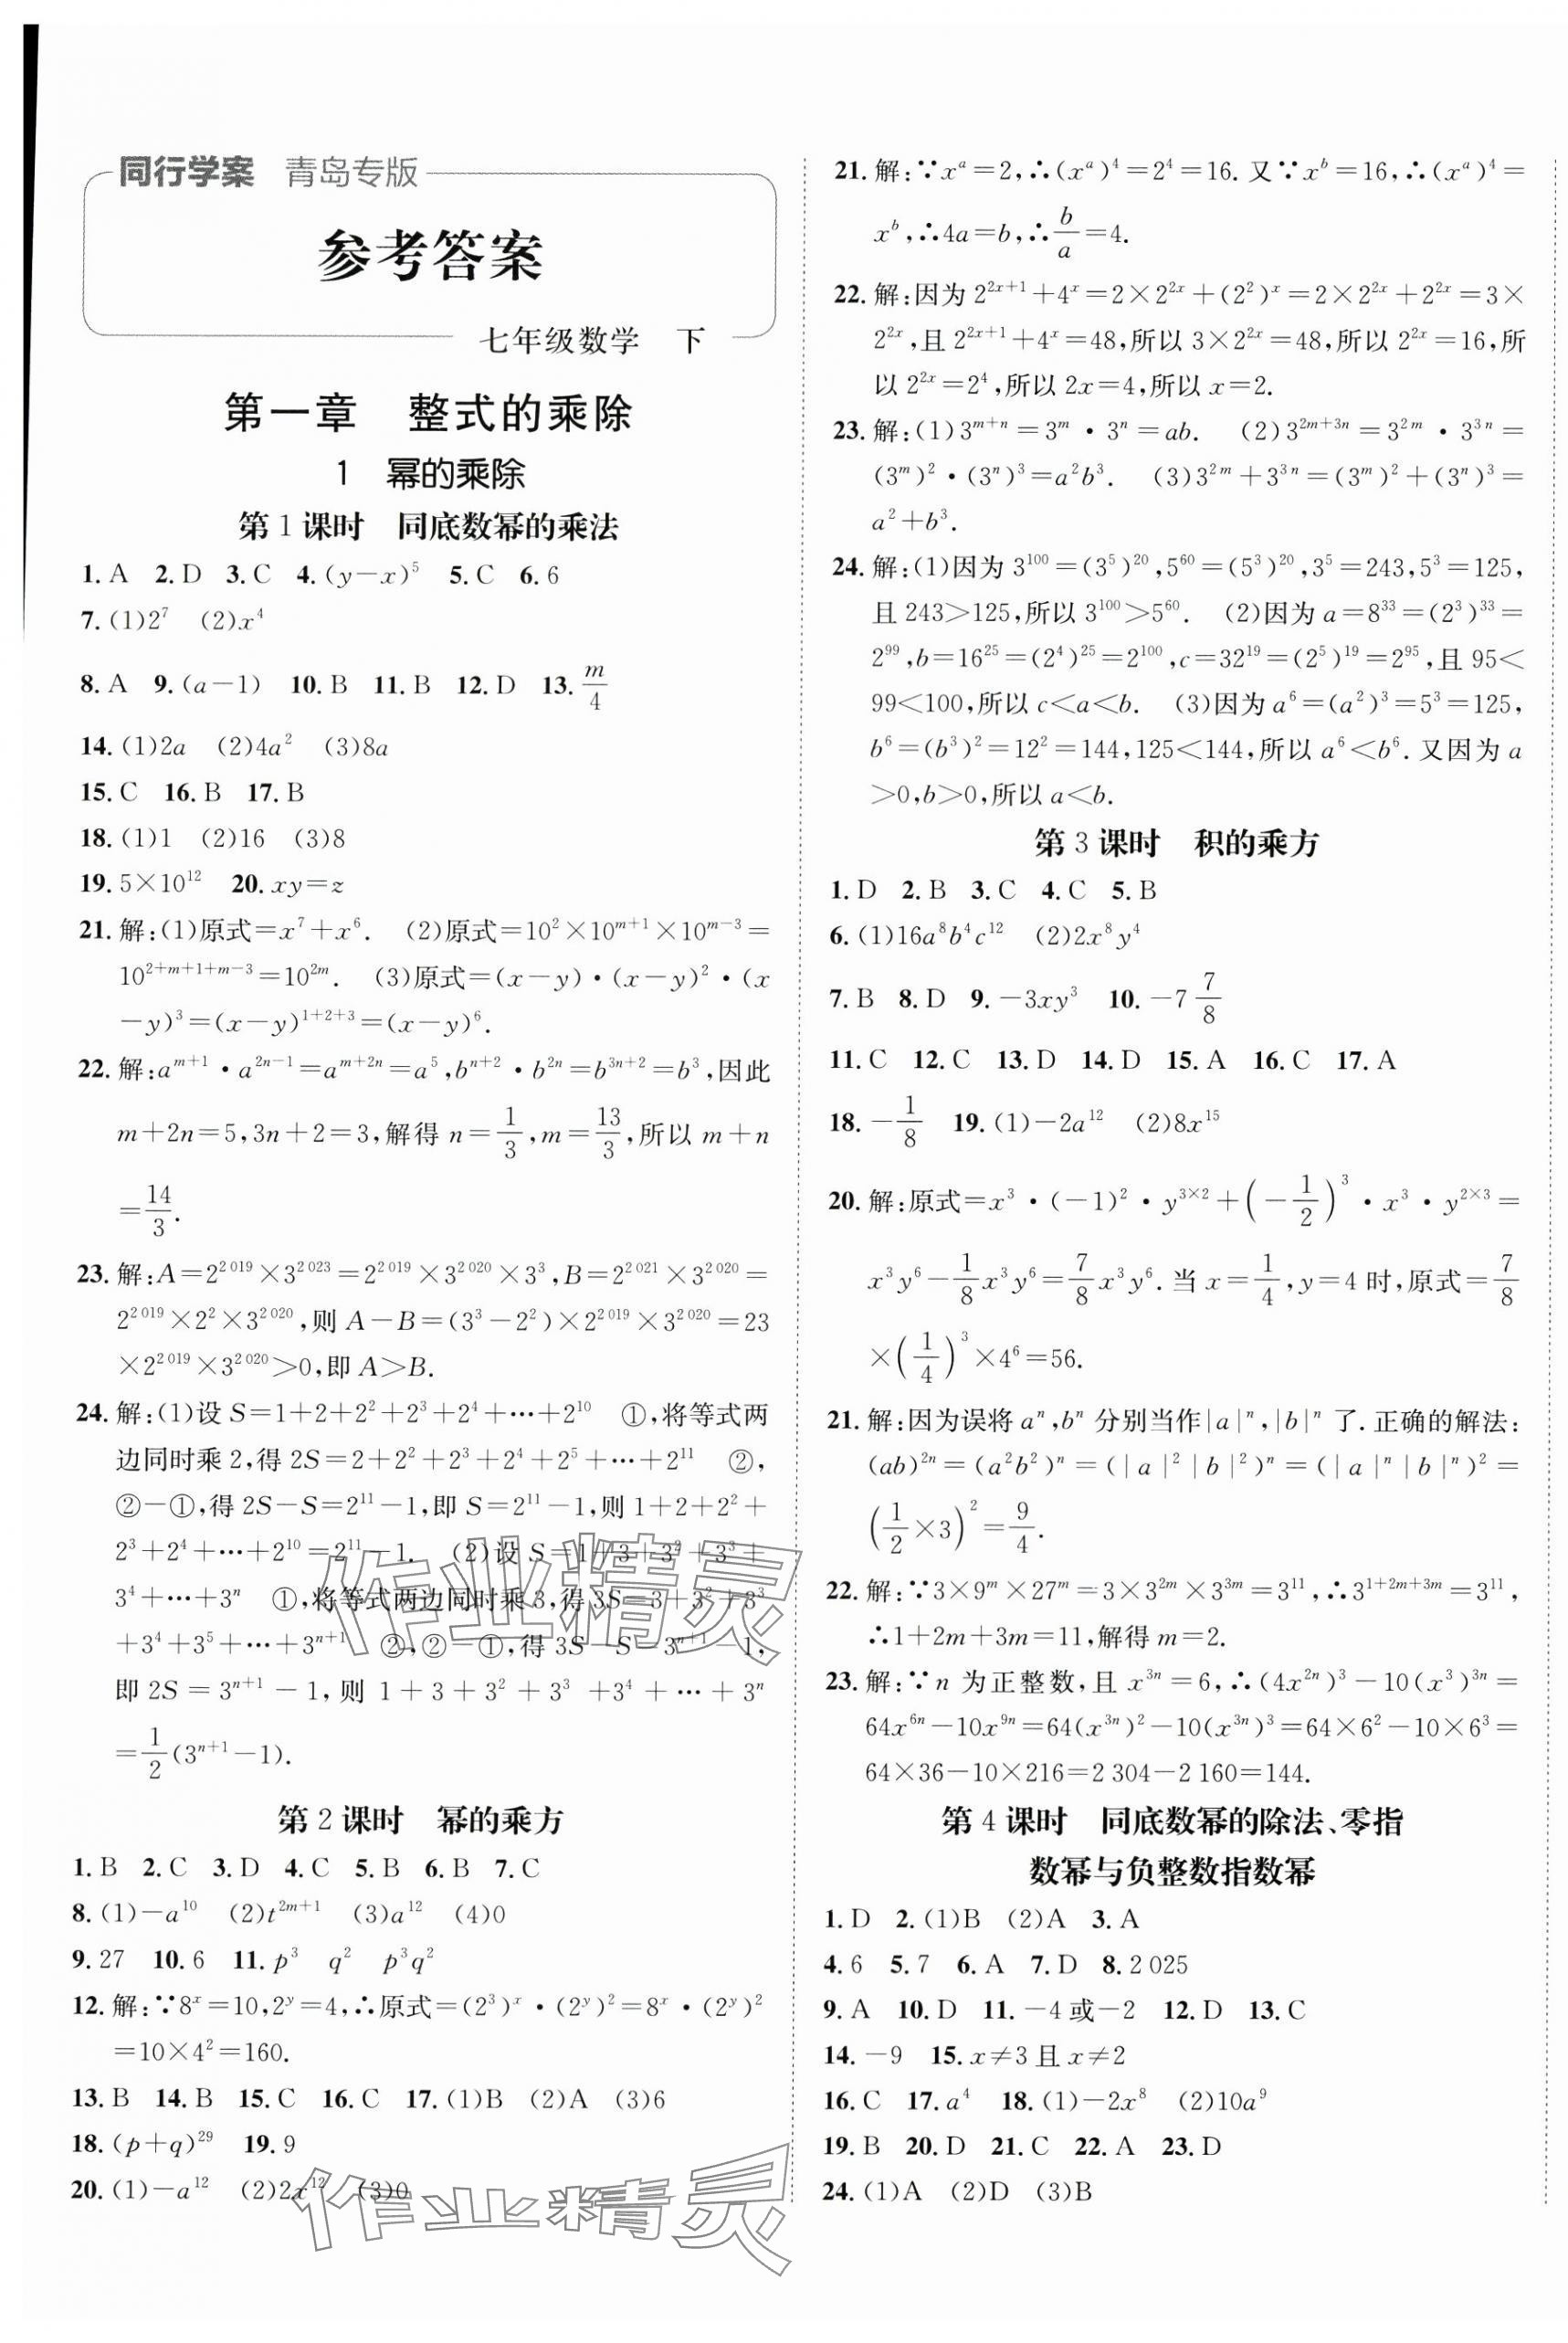 同行学案 青岛专版
参考答案
七年级数学 下
第一章 整式的乘除
1 幂的乘除
第1课时 同底数幂的乘法
1. A 2. D 3. C 4. (y－x)⁵ 5. C 6. 6
7. (1)2⁷ (2)x⁴
8. A 9. (a－1) 10. B 11. B 12. D 13. m/4
14. (1)2a (2)4a² (3)8a
15. C 16. B 17. B
18. (1)1 (2)16 (3)8
19. 5×10¹² 20. xy＝z
21. 解:(1)原式＝x⁷＋x⁶. (2)原式＝10²×10^{m＋1}×10^{m－3}＝
10^{2＋m＋1＋m－3}＝10^{2m}. (3)原式＝(x－y)·(x－y)²·(x
－y)³＝(x－y)^{1＋2＋3}＝(x－y)⁶.
22. 解:a^{m＋1}·a^{2n－1}＝a^{m＋2n}＝a⁵,b^{n＋2}·b^{2n}＝b^{3n＋2}＝b³,因此
m＋2n＝5,3n＋2＝3,解得 n＝1/3,m＝13/3,所以 m＋n
＝14/3.
23. 解:A＝2^{2 019}×3^{2 023}＝2^{2 019}×3^{2 020}×3³,B＝2^{2 021}×3^{2 020}＝
2^{2 019}×2²×3^{2 020},则 A－B＝(3³－2²)×2^{2 019}×3^{2 020}＝23
×2^{2 019}×3^{2 020}＞0,即 A＞B.
24. 解:(1)设 S＝1＋2＋2²＋2³＋2⁴＋…＋2¹⁰ ①,将等式两
边同时乘 2,得 2S＝2＋2²＋2³＋2⁴＋2⁵＋…＋2¹¹ ②,
②－①,得 2S－S＝2¹¹－1,即 S＝2¹¹－1,则 1＋2＋2²＋
2³＋2⁴＋…＋2¹⁰＝2¹¹－1. (2)设 S＝1＋3＋3²＋3³＋
3⁴＋…＋3ⁿ ①,将等式两边同时乘 3,得 3S＝3＋3²＋3³
＋3⁴＋3⁵＋…＋3^{n＋1} ②,②－①,得 3S－S＝3^{n＋1}－1,
即 2S＝3^{n＋1}－1,则 1＋3＋3²＋3³＋3⁴＋…＋3ⁿ
＝1/2(3^{n＋1}－1).
第2课时 幂的乘方
1. B 2. C 3. D 4. C 5. B 6. B 7. C
8. (1)－a¹⁰ (2)t^{2m＋1} (3)a¹² (4)0
9. 27 10. 6 11. p³ q² p³q²
12. 解:∵8ˣ＝10,2ʸ＝4,∴原式＝(2³)ˣ·(2ʸ)²＝8ˣ·(2ʸ)²
＝10×4²＝160.
13. B 14. B 15. C 16. C 17. (1)B (2)A (3)6
18. (p＋q)²⁹ 19. 9
20. (1)－a¹² (2)2x¹² (3)0
作业精灵
作业精灵
21. 解:∵xᵃ＝2,∴(xᵃ)⁴＝2⁴＝16. 又∵xᵇ＝16,∴(xᵃ)⁴＝
xᵇ,∴4a＝b,∴b/a＝4.
22. 解:因为 2^{2x＋1}＋4ˣ＝2×2^{2x}＋(2²)ˣ＝2×2^{2x}＋2^{2x}＝3×
2^{2x},且 2^{2x＋1}＋4ˣ＝48,所以 3×2^{2x}＝48,所以 2^{2x}＝16,所
以 2^{2x}＝2⁴,所以 2x＝4,所以 x＝2.
23. 解:(1)3^{m＋n}＝3ᵐ·3ⁿ＝ab. (2)3^{2m＋3n}＝3^{2m}·3^{3n}＝
(3ᵐ)²·(3ⁿ)³＝a²b³. (3)3^{2m}＋3^{3n}＝(3ᵐ)²＋(3ⁿ)³＝
a²＋b³.
24. 解:(1)因为 3¹⁰⁰＝(3⁵)²⁰,5⁶⁰＝(5³)²⁰,3⁵＝243,5³＝125,
且 243＞125,所以 3¹⁰⁰＞5⁶⁰. (2)因为 a＝8³³＝(2³)³³＝
2⁹⁹,b＝16²⁵＝(2⁴)²⁵＝2¹⁰⁰,c＝32¹⁹＝(2⁵)¹⁹＝2⁹⁵,且 95＜
99＜100,所以 c＜a＜b. (3)因为 a⁶＝(a²)³＝5³＝125,
b⁶＝(b³)²＝12²＝144,125＜144,所以 a⁶＜b⁶. 又因为 a
＞0,b＞0,所以 a＜b.
第3课时 积的乘方
1. D 2. B 3. C 4. C 5. B
6. (1)16a⁸b⁴c¹² (2)2x⁸y⁴
7. B 8. D 9. －3xy³ 10. －7 7/8
11. C 12. C 13. D 14. D 15. A 16. C 17. A
18. －1/8 19. (1)－2a¹² (2)8x¹⁵
20. 解:原式＝x³·(－1)²·y^{3×2}＋(－1/2)³·x³·y^{2×3}＝
x³y⁶－1/8x³y⁶＝7/8x³y⁶. 当 x＝1/4,y＝4 时,原式＝7/8
×(1/4)³×4⁶＝56.
21. 解:因为误将 aⁿ,bⁿ 分别当作|a|ⁿ,|b|ⁿ 了. 正确的解法:
(ab)^{2n}＝(a²b²)ⁿ＝(|a|²|b|²)ⁿ＝(|a|ⁿ|b|ⁿ)²＝
(1/2×3)²＝9/4.
22. 解:∵3×9ᵐ×27ᵐ＝3×3^{2m}×3^{3m}＝3¹¹,∴3^{1＋2m＋3m}＝3¹¹,
∴1＋2m＋3m＝11,解得 m＝2.
23. 解:∵n 为正整数,且 x^{3n}＝6,∴(4x^{2n})³－10(x³)^{3n}＝
64x^{6n}－10x^{9n}＝64(x^{3n})²－10(x^{3n})³＝64×6²－10×6³＝
64×36－10×216＝2 304－2 160＝144.
第4课时 同底数幂的除法、零指
数幂与负整数指数幂
1. D 2. (1)B (2)A 3. A
4. 6 5. 7 6. A 7. D 8. 2 025
9. A 10. D 11. －4 或－2 12. D 13. C
14. －9 15. x≠3 且 x≠2
16. C 17. a⁴ 18. (1)－2x⁸ (2)10a⁹
19. B 20. D 21. C 22. A 23. D
24. (1)A (2)D (3)B